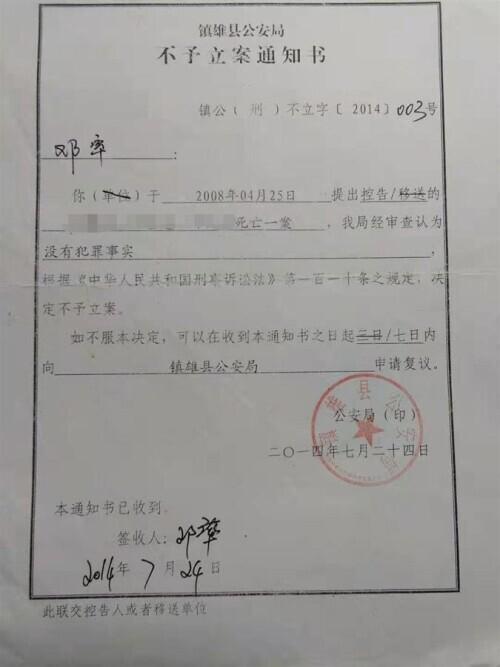 镇雄县公安局
不予立案通知书
镇公(刑)不立字〔2014〕003号
邓率:
你(单位)于 2008年04月25日 提出控告/移送的
死亡一案,我局经审查认为
没有犯罪事实,
根据《中华人民共和国刑事诉讼法》第一百一十条之规定,决
定不予立案。
如不服本决定,可以在收到本通知书之日起三日/七日内
向 镇雄县公安局 申请复议。
公安局(印)
二〇一四年七月二十四日
本通知书已收到。
签收人:邓率
2014年7月24日
此联交控告人或者移送单位